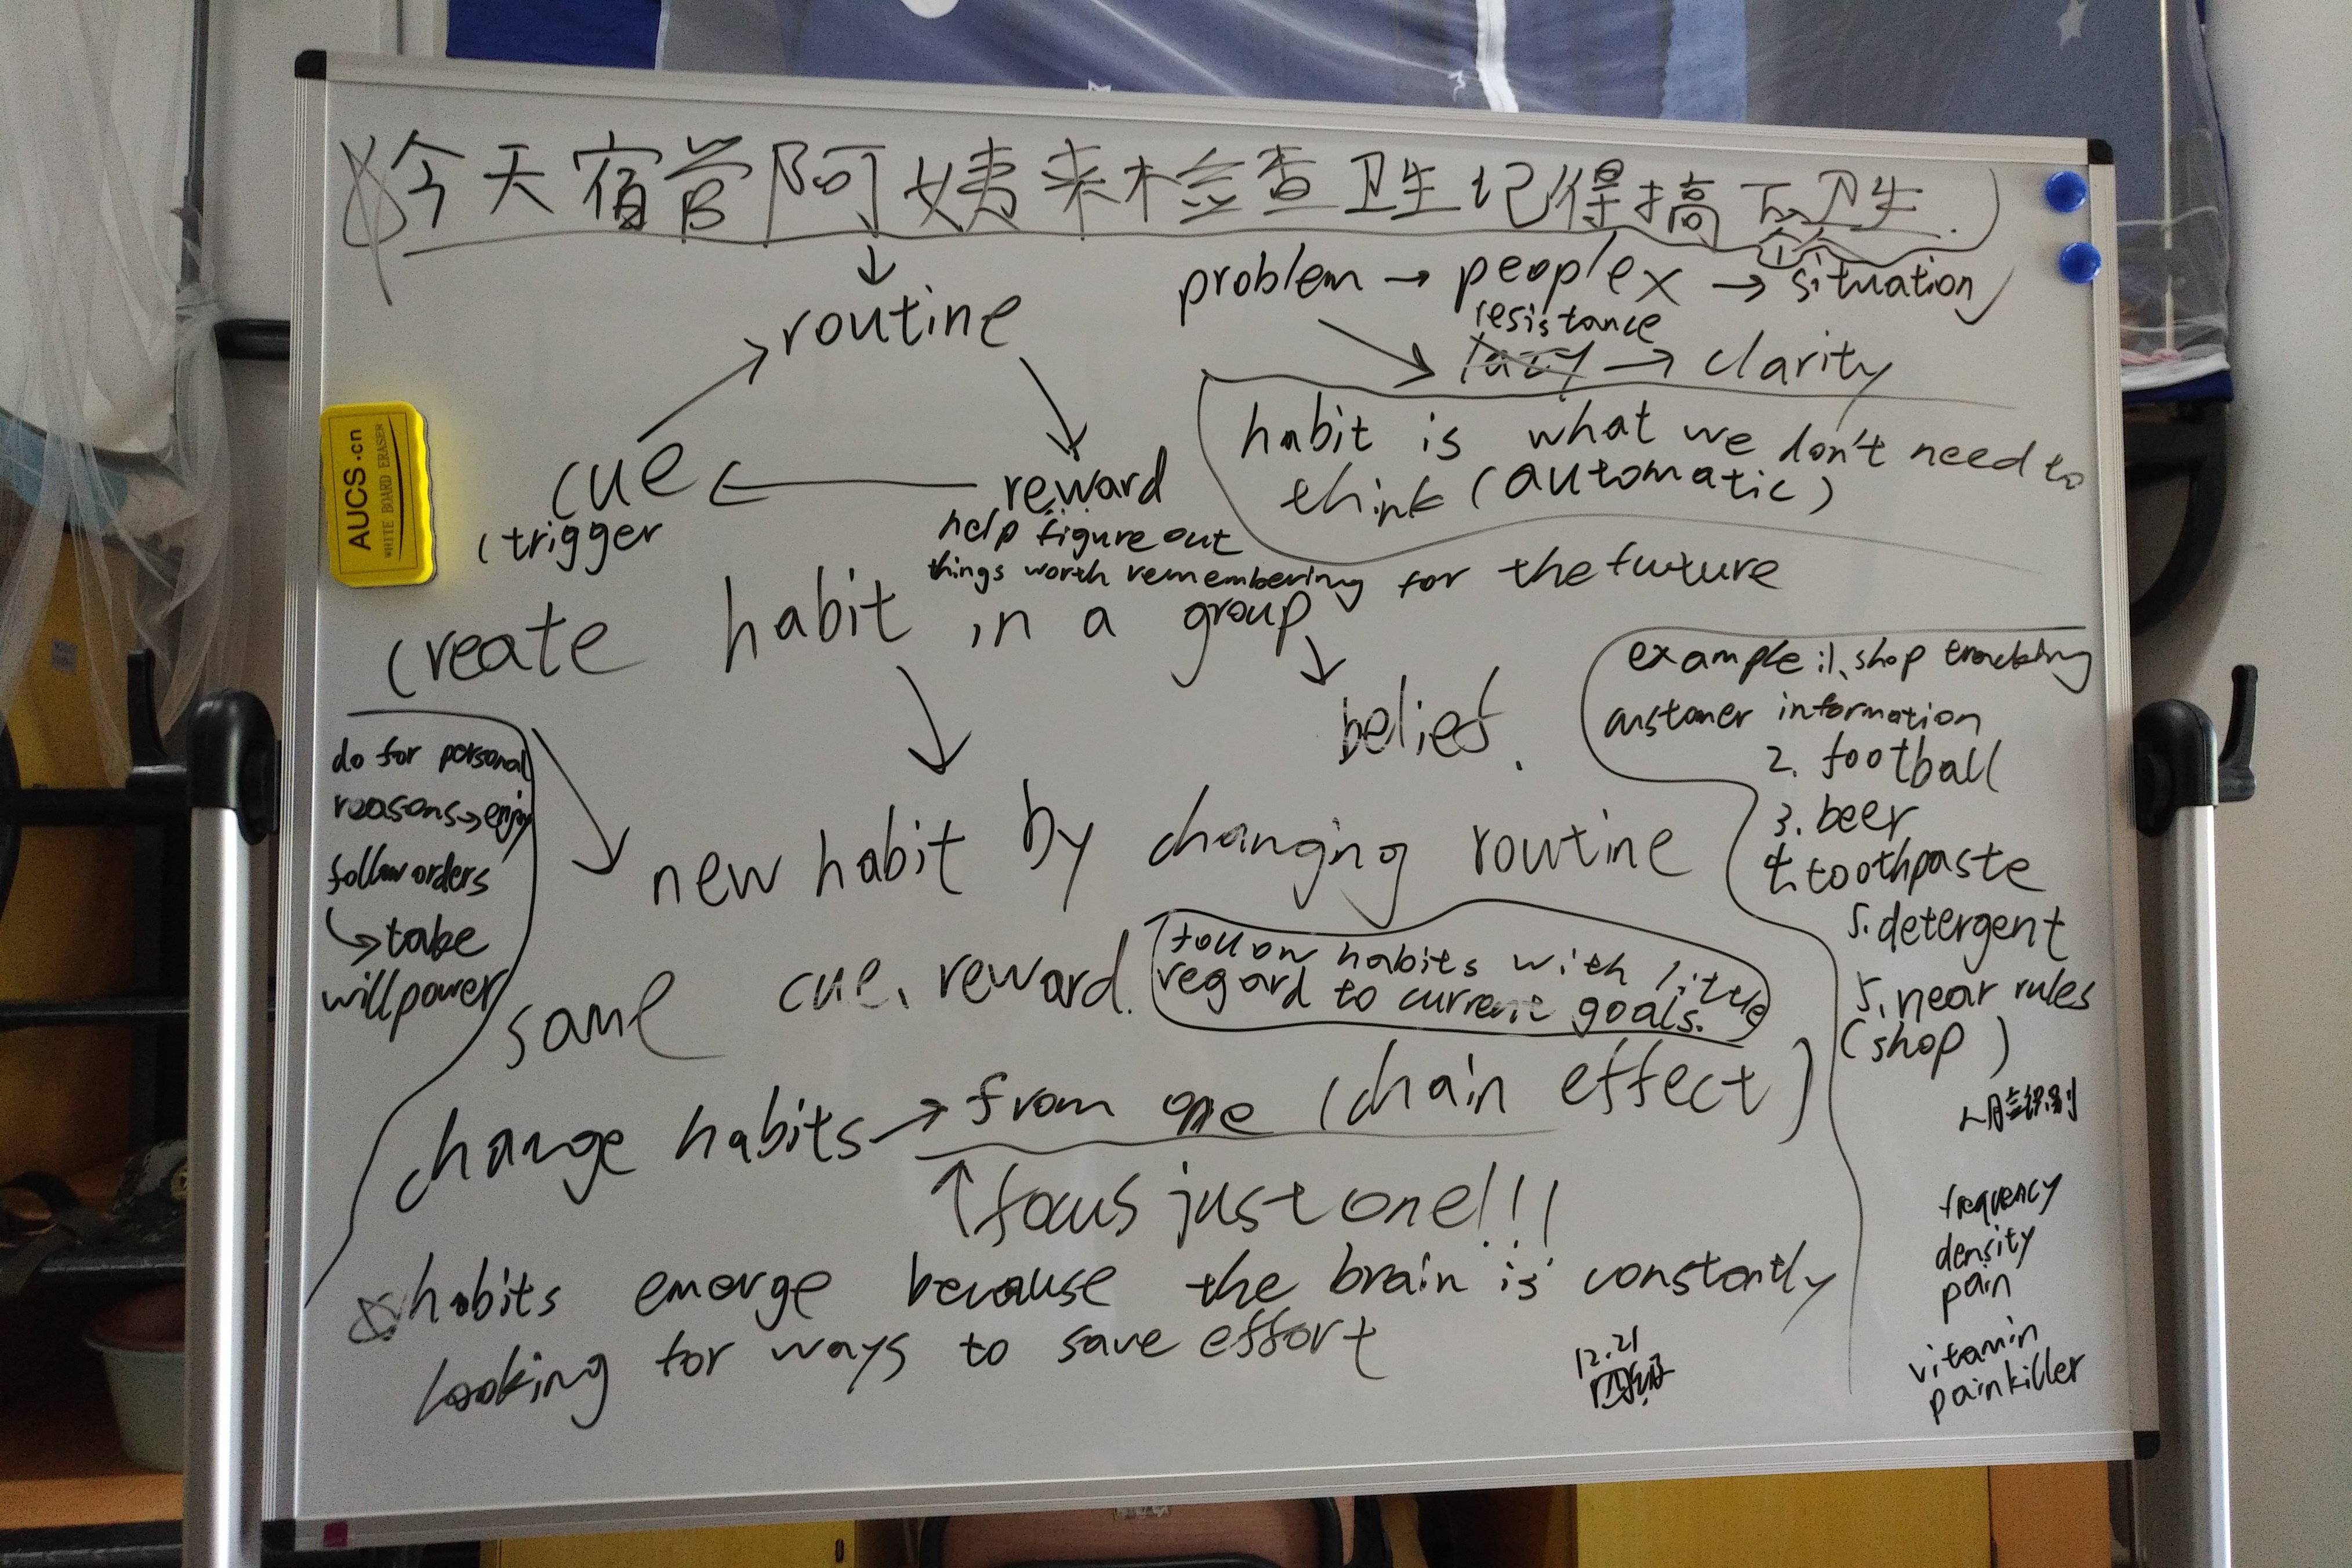 今天宿管阿姨来检查卫生记得搞下个人卫生.
problem → people x → situation
resistance
lazy → clarity
routine
cue
(trigger
reward
help figure out
things worth remembering for the future
habit is what we don't need to
think (automatic)
create habit in a group
belief.
do for personal
reasons → enjoy
follow orders
→ take
willpower
new habit by changing routine
same cue、reward.
follow habits with little
regard to current goals.
change habits → from one (chain effect)
↑ focus just one!!!
☆ habits emerge because the brain is constantly
looking for ways to save effort
12.21
example: 1、shop tracking
customer information
2. football
3. beer
4. toothpaste
5. detergent
5. near rules
(shop)
人脸识别
frequency
density
pain
vitamin
painkiller
AUCS.cn
WHITE BOARD ERASER